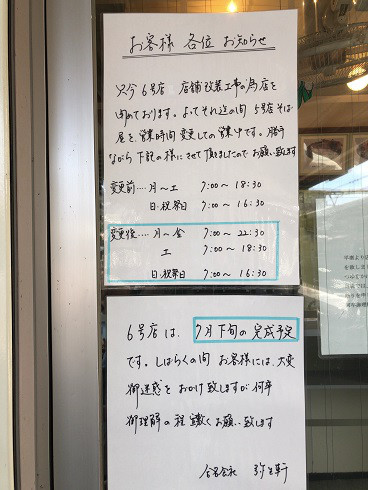 お客様 各位 お知らせ
只今6号店 店舗改装工事の為店を
閉めております。よってそれ迄の間 5号店そば
屋を、営業時間変更しての営業中です。勝手
ながら下記の様にさせて頂きましたので お願い致します
変更前‥‥月〜土 7:00〜18:30
日・祝祭日 7:00〜16:30
変更後‥‥月〜金 7:00〜22:30
土 7:00〜18:30
日・祝祭日 7:00〜16:30
6号店は、7月下旬の完成予定
です。しばらくの間 お客様には、大変
御迷惑を おかけ致しますが 何卒
御理解の程 宜敷くお願い致します
合名会社 弥生軒